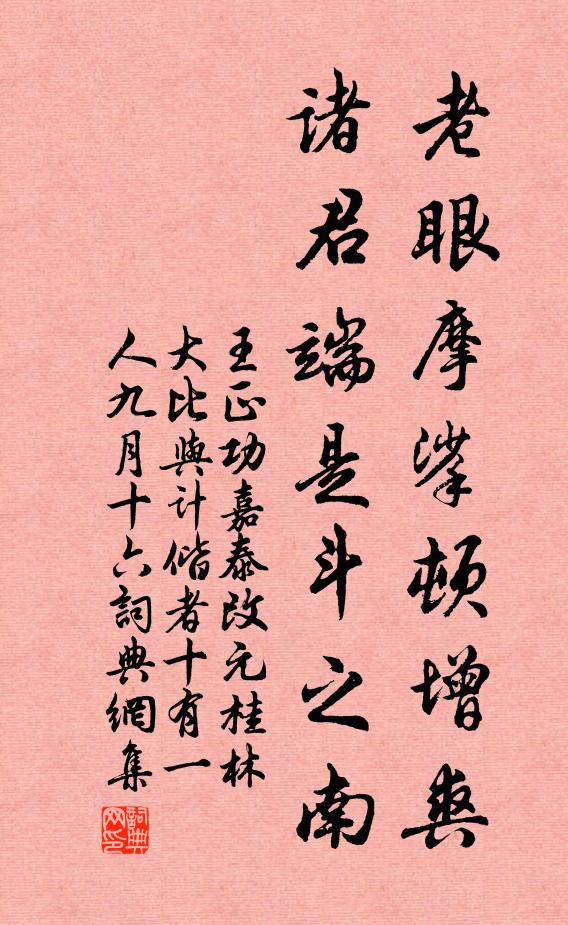 老眼摩挲頓增爽
诸君端是斗之南
王正功嘉泰改元桂林
大比與计偕者十有一
人九月十六詞典網集
詞典网印